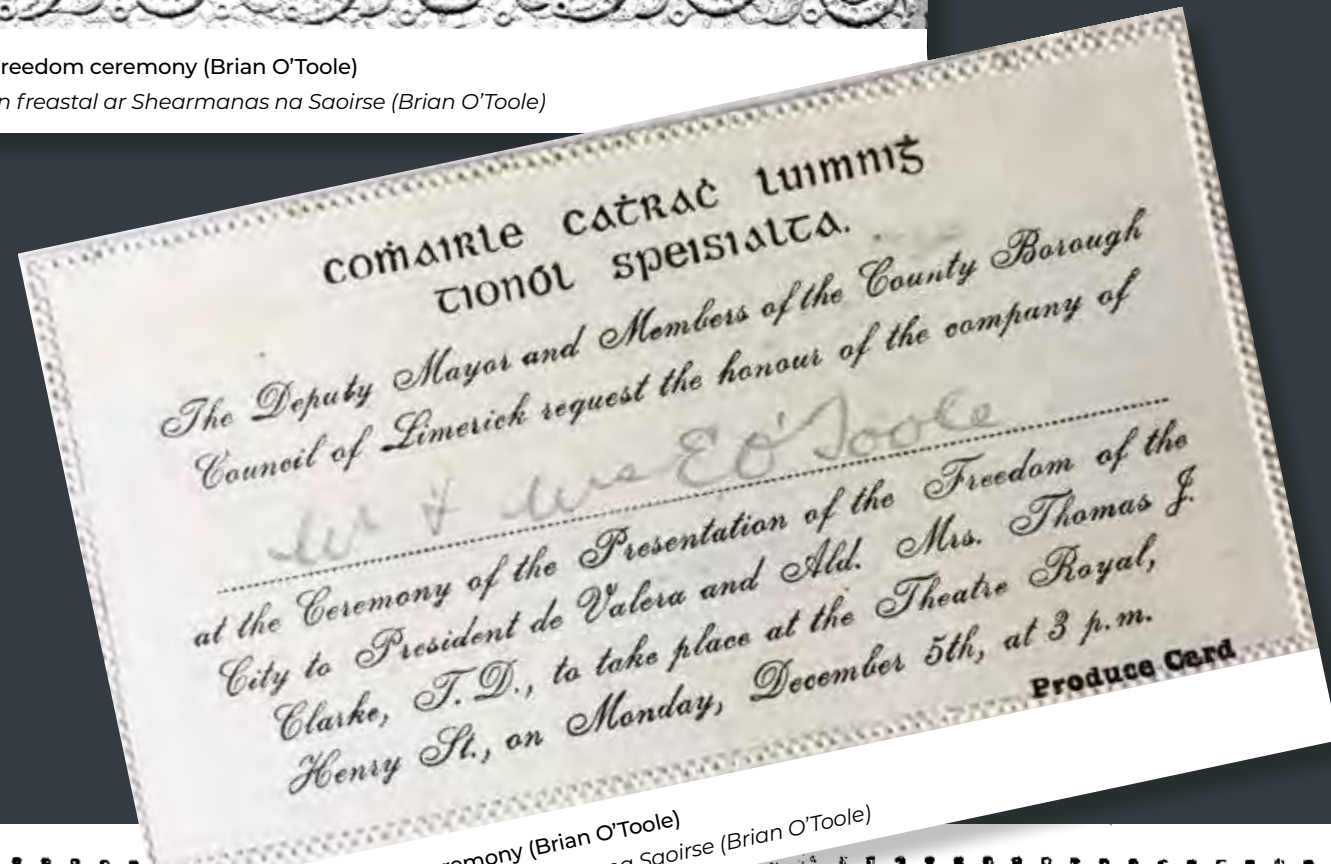 reedom ceremony (Brian O’Toole)
n freastal ar Shearmanas na Saoirse (Brian O’Toole)
comairle catraċ luimniġ
tionól speisialta.
The Deputy Mayor and Members of the County Borough
Council of Limerick request the honour of the company of
Mr & Mrs E O'Toole
at the Ceremony of the Presentation of the Freedom of the
City to President de Valera and Ald. Mrs. Thomas J.
Clarke, T.D., to take place at the Theatre Royal,
Henry St., on Monday, December 5th, at 3 p.m.
Produce Card
remony (Brian O’Toole)
na Saoirse (Brian O’Toole)